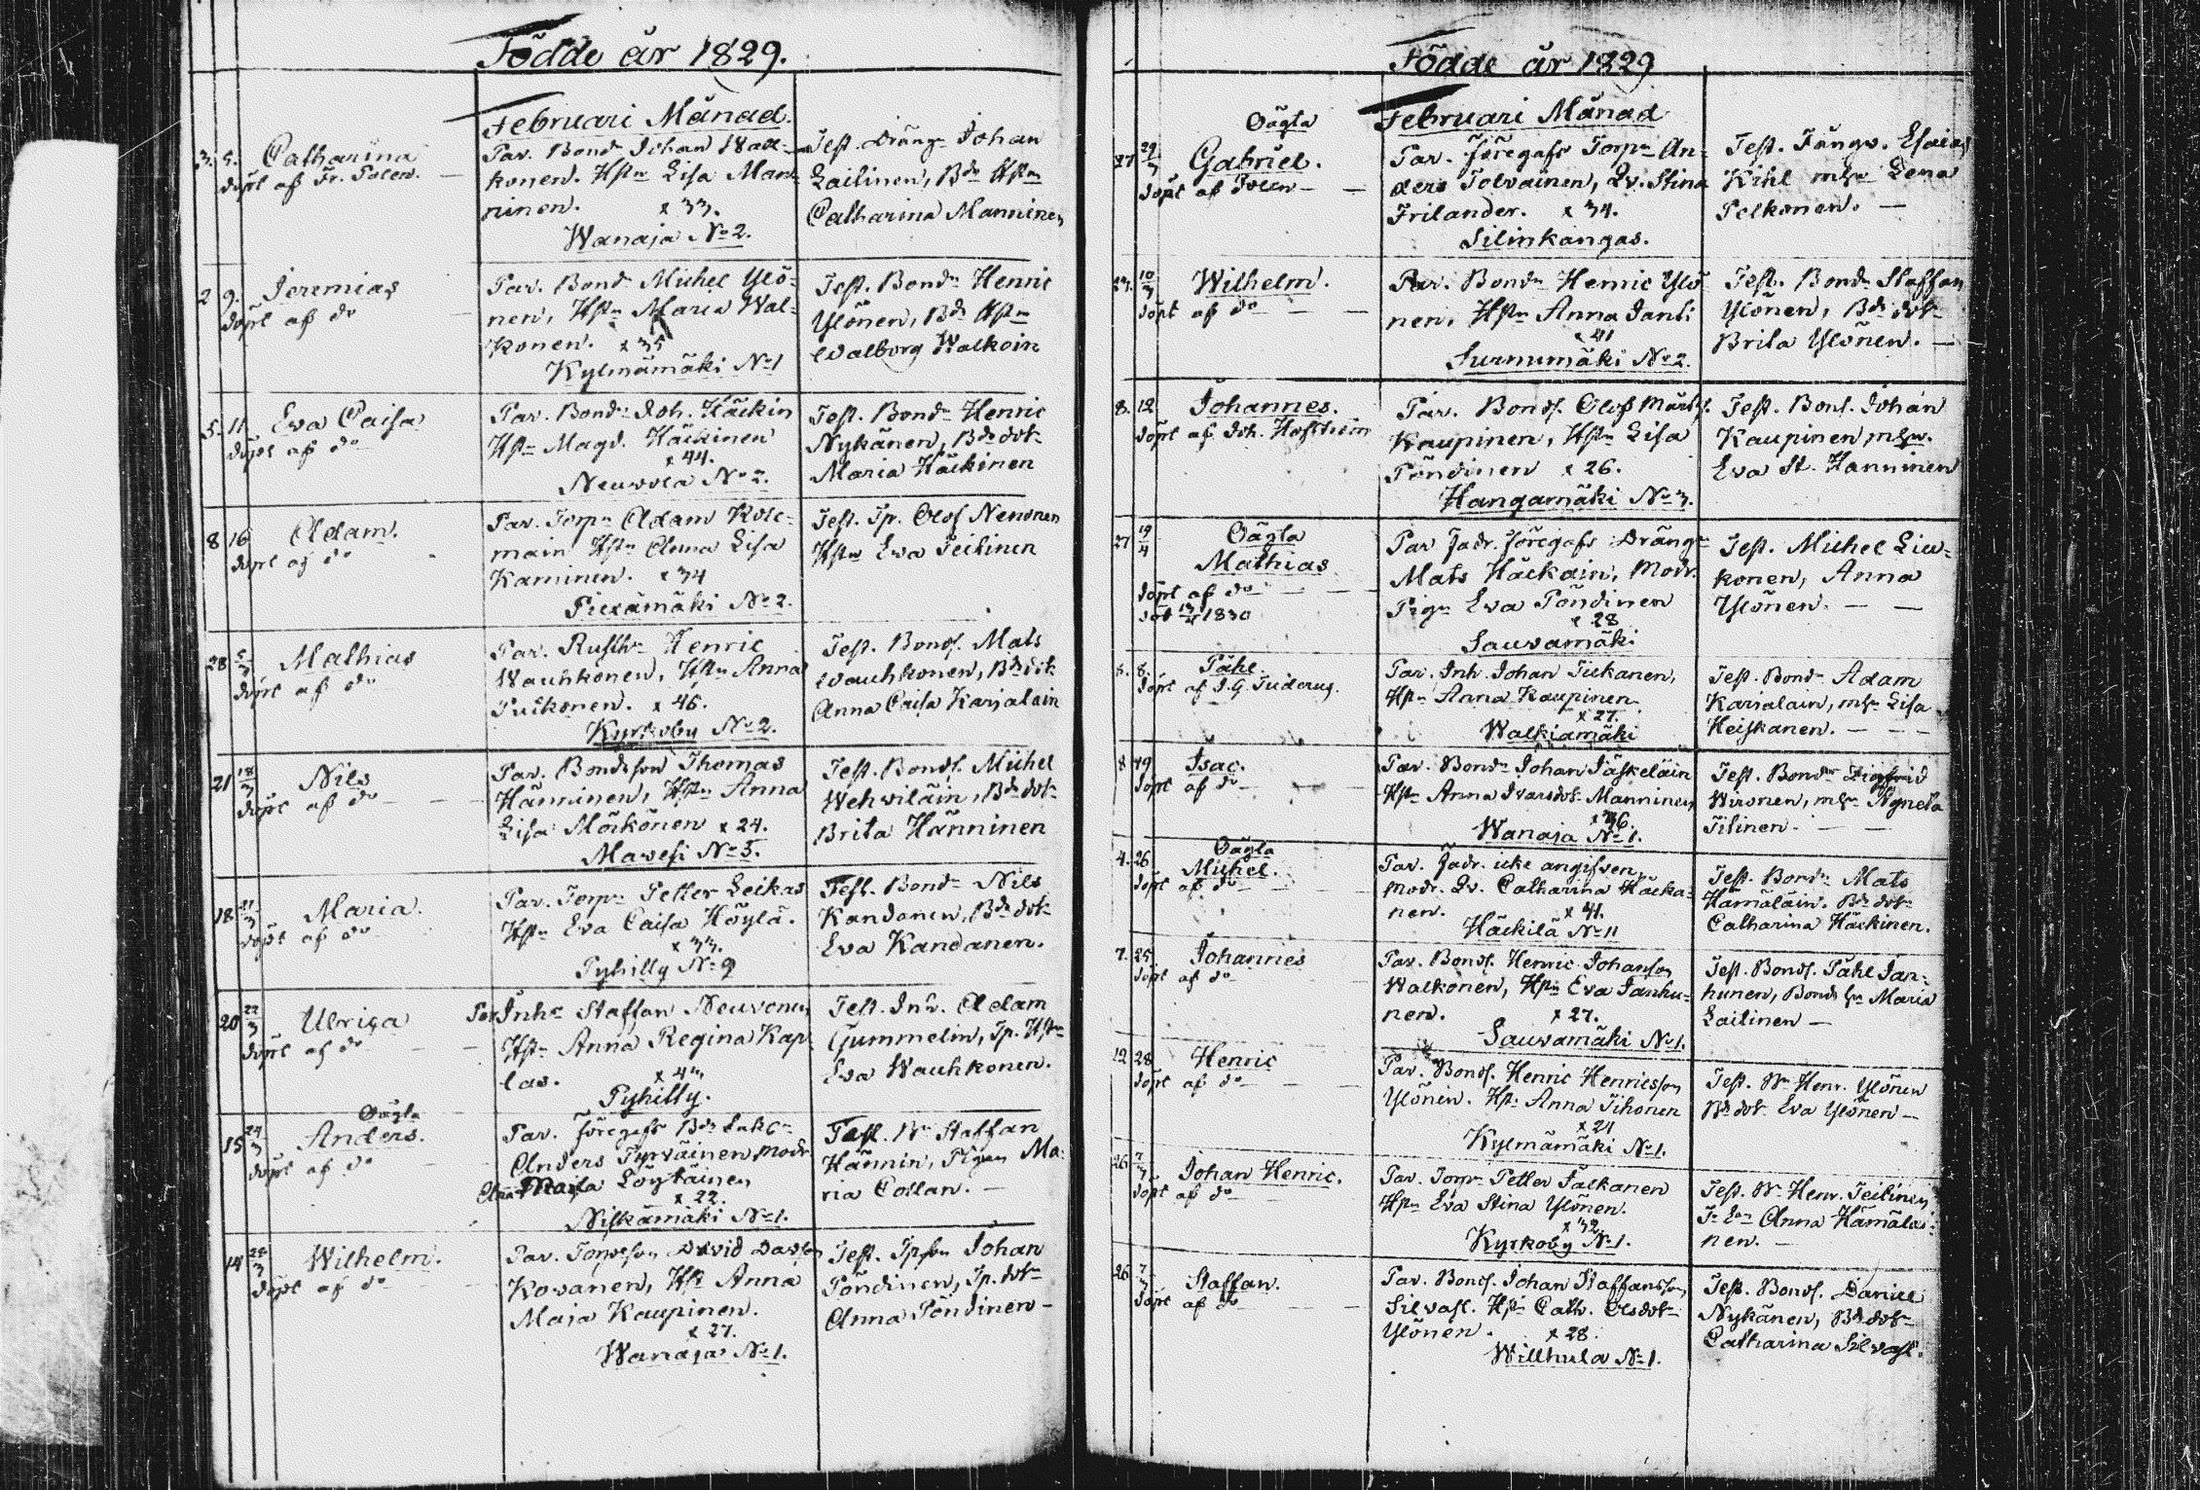 Födde år 1829.
Februari Månad.
3. 5. Catharina
döpt af Fr. Polen. —
Par. Bond Johan
konen. Hstr Lisa Man-
ninen. x 33.
Wanaja No 2.
Test. Dräng Johan
Laitinen, Bdr Hstr
Catharina Manninen
2 9. Jeremias
döpt af do —
Par. Bond Michel Ylö-
nen, Hstr Maria Wal-
konen. x 35
Kylmämäki No 1
Test. Bondn Henric
Ylönen, Bdr Hstr
Walborg Walkoin
5. 11. Eva Caisa
döpt af do
Par. Bondn Joh. Häckin
Hstr Magd. Häckinen
x 44.
Neuvola No 2.
Test. Bondn Henric
Nykänen, Bdr dotr
Maria Häckinen
8 16 Adam.
döpt af do
Par. Torpr Adam Kole-
main Hstr Anna Lisa
Kaminen. x 34
Piexämäki No 2.
Test. Tp. Olof Nenonen
Hstr Eva Teitinen
28 5/3 Mathias
döpt af do
Par. Rusth Henric
Wauhkonen, Hstr Anna
Pulkonen. x 46.
Kyrkoby No 2.
Test. Bonds. Mats
Wauhkonen, Bdr dotr
Anna Caisa Karjalain
21 18/3 Nils
döpt af do — —
Par. Bondeson Thomas
Hänninen, Hstr Anna
Lisa Mörkönen x 24.
Mavesi No 5.
Test. Bonds. Michel
Wehviläin, Bdr dotr
Brita Hänninen
18 21/3 Maria.
döpt af do
Par. Torpr Petter Leikas
Hstr Eva Caisa Höylä.
x 33.
Pyhilly No 9
Test. Bondn Nils
Kandanen, Bdr dotr
Eva Kandanen.
20 22/3 Ulrica
döpt af do — —
Par Inhr Staffan Neuvonen
Hstr Anna Regina Kap
las.
Pyhilly.
Test. Inh. Adam
Gummelin, Tp. Hstr
Eva Wauhkonen.
15 24/3 Oägta
Anders.
döpt af do —
Par. föregafs Bdr
Anders Tyrväinen, Modr
Maja Löytäinen
x 22.
Niskamäki No 1.
Test. Staffan
Hännin, Pigan Ma-
ria Collan. —
14 Wilhelm.
döpt af do —
Par. Torpeson David Davidson
Kovanen, Hstr Anna
Maja Kaupinen.
x 27.
Wanaja No 1.
Test. Tpson Johan
Pöndinen, Tp. dotr
Anna Pöndinen —
Födde år 1829
Februari Månad
27 29/3 Oägta
Gabriel.
döpt af Polen — —
Par. föregafs Torpr An-
ders Tolvainen, Qv. Stina
Frilander. x 34.
Silinkangas.
Test. Esaias
Kihl mhu Lena
Pelkonen. —
27. 10/3 Wilhelm.
döpt af do — —
Par. Bondn Henric Ylö
nen, Hstr Anna Janti
x 41
Surnumäki No 2.
Test. Bondn Staffan
Ylönen, Bdr dotr
Brita Ylönen. —
8. 12 Johannes.
döpt af Joh. Hoffrein
Par. Bonds. Olof Mårts.
Kaupinen, Hstr Lisa
Pöndinen x 26.
Hangamäki No 3.
Test. Bons. Johan
Kaupinen mhu.
Eva St. Hanninen
27 19/4 Oägta
Mathias
döpt af do — —
död 13/4 1830
Par fadr. föregafs Dräng
Mats Häckain, Modr.
Pign Eva Pöndinen
x 28
Sauvamäki
Test. Michel Liu-
konen, Anna
Ylönen. — —
8. 8. Påhl.
döpt af J. G. Tuderus.
Par. Inh. Johan Tiikanen,
Hstr Anna Kaupinen
x 27.
Walkiamäki
Test. Bondn Adam
Karjalain, mhu Lisa
Heiskanen. — — —
8 19 Isac.
döpt af do — —
Par. Bondn Johan Jäskeläin
Hstr Anna Ivarsdotr Manninen
x 36.
Wanaja No 1.
Test. Bondn Zigfrid
Wironen, mhu Agneta
Titinen. — —
4. 26 Oägta
Michel.
döpt af do
Par. fadr. icke angifven,
Modr. Qv. Catharina Häcka-
nen. x 41.
Häckilä No 11
Test. Bondn Mats
Hämäläin. Bdr dotr
Catharina Häckinen.
7. 25 Johannes
döpt af do —
Par. Bonds. Henric Johanson
Walkonen, Hstr Eva Janhu-
nen. x 27.
Sauvamäki No 1.
Test. Bonds. Påhl Jan-
hunen, Bonds hu Maria
Laitinen —
12 28 Henric
döpt af do — —
Par. Bonds. Henric Henricsson
Ylönen. Hstr Anna Tihonen
x 24
Kylmämäki No 1.
Test. Henr. Ylönen
Bdr dotr Eva Ylönen —
26 7/3 Johan Henric.
döpt af do —
Par. Torpr Petter Falkanen
Hstr Eva Stina Ylönen.
x 32
Kyrkoby No 1.
Test. Henr. Teitinen
Anna Hämäläi-
nen. —
26 7/3 Staffan.
döpt af do —
Par. Bonds. Johan Staffansson
Silvast. Hstr Cath. Olsdotr
Ylönen. x 28.
Willhula No 1.
Test. Bonds. Daniel
Nykänen, Bdr dotr
Catharina Silvast.